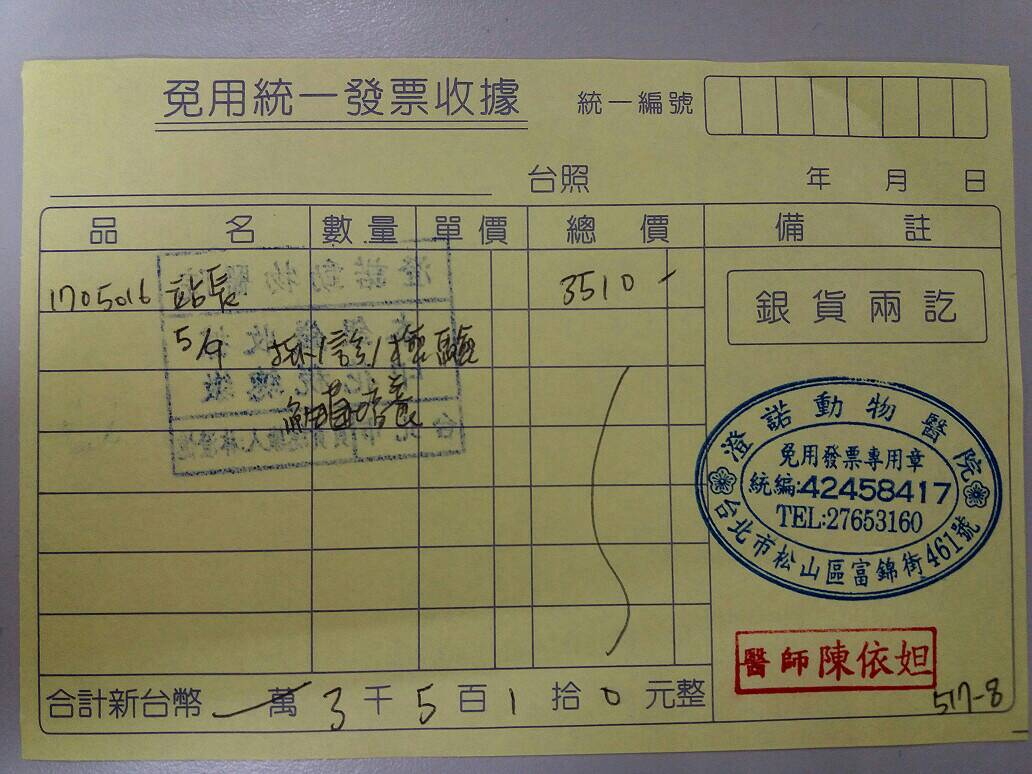 免用統一發票收據
統一編號
台照 年 月 日
品名 數量 單價 總價 備註
1705016 站長 3510-
5/9 掛/診/檢驗
細菌培養
銀貨兩訖
澄諾動物醫院
免用發票專用章
統編:42458417
TEL:27653160
台北市松山區富錦街461號
醫師陳依妲
合計新台幣 萬 3 千 5 百 1 拾 0 元整
517-8